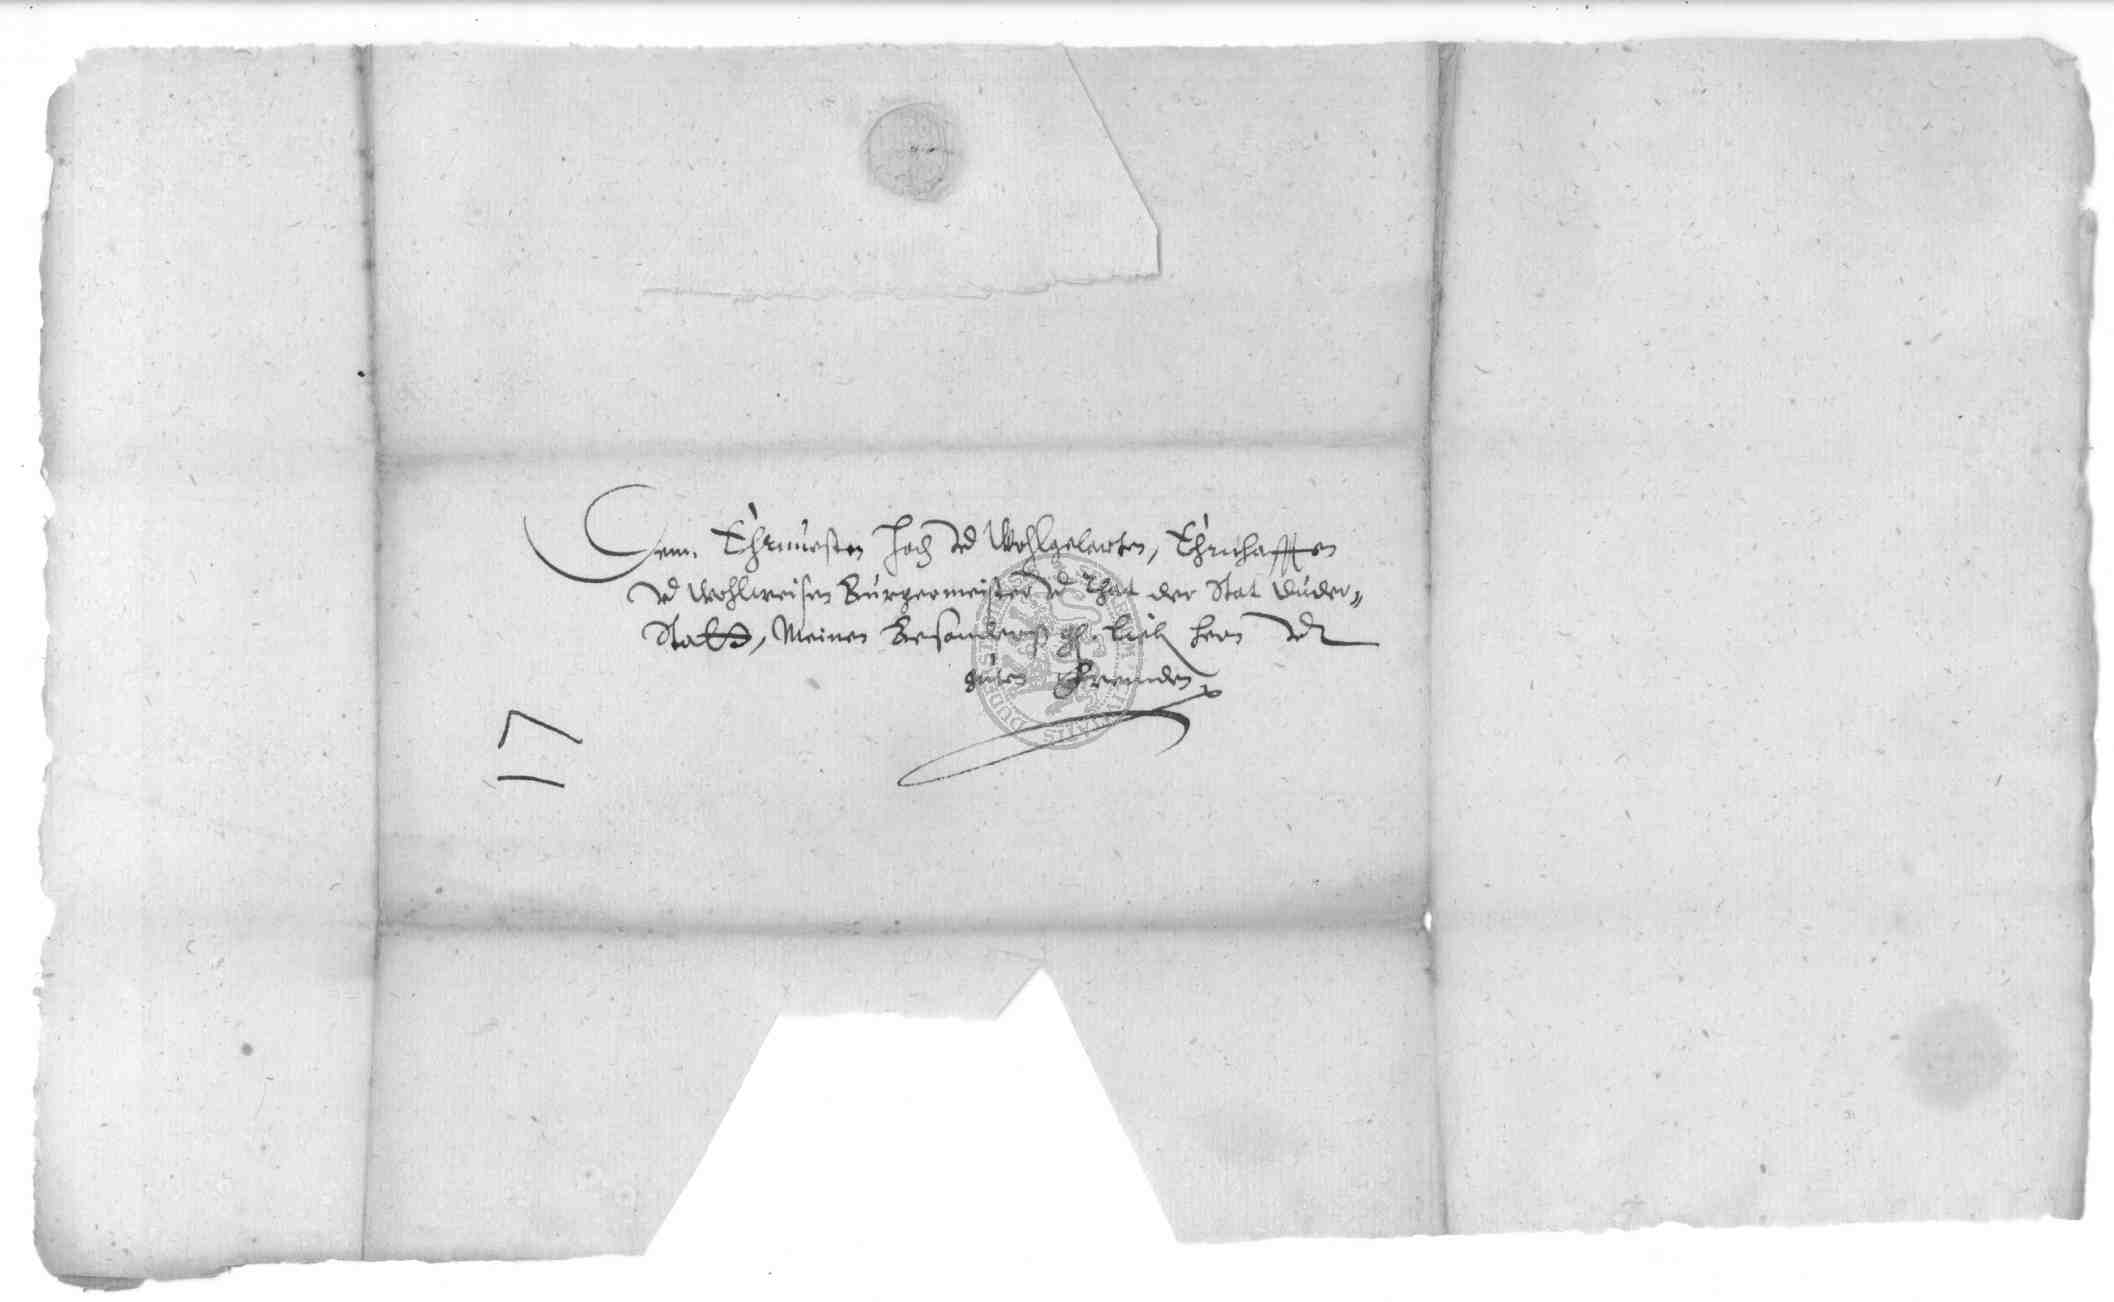 Denn Ehrnuesten Hoch vnd Wohlgelarten, Ehrnhafften
vnd Wohlweisen Bürgermeister vnd Rhat der Stat Duder-
Stadt, Meinen Besonders g. lieb. Hern vnd
guten Freunden